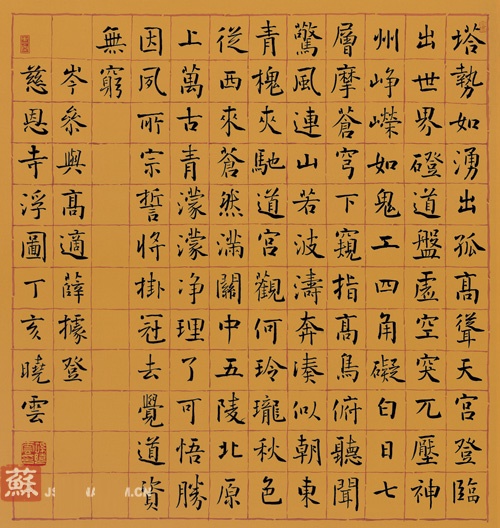 塔勢如湧出孤高聳天宮登臨
出世界磴道盤虛空突兀壓神
州崢嶸如鬼工四角礙白日七
層摩蒼穹下窺指高鳥俯聽聞
驚風連山若波濤奔湊似朝東
青槐夾馳道宮觀何玲瓏秋色
從西來蒼然滿關中五陵北原
上萬古青濛濛净理了可悟勝
因夙所宗誓將掛冠去覺道資
無窮
岑參與高適薛據登
慈恩寺浮圖丁亥曉雲
蘇